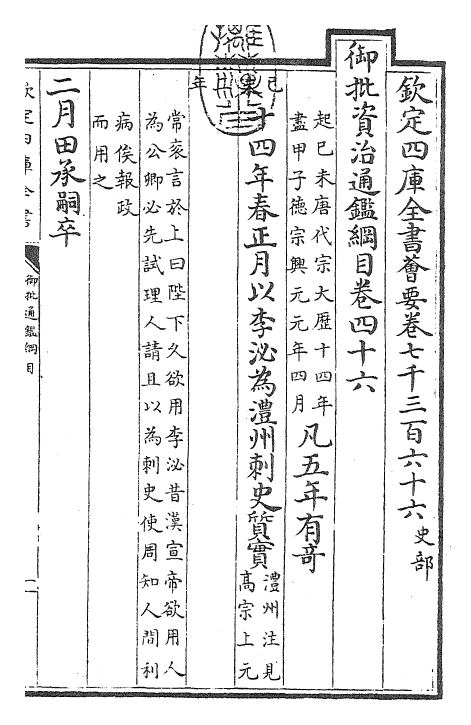 欽定四庫全書薈要卷七千三百六十六 史部
御批資治通鑑綱目卷四十六
起己未唐代宗大歷十四年
盡甲子德宗興元元年四月
凡五年有奇
己未年
十四年春正月以李泌為澧州刺史質實
澧州注見
高宗上元
常袞言於上曰陛下久欲用李泌昔漢宣帝欲用人
為公卿必先試理人請且以為刺史使周知人間利
病俟報政
而用之
二月田承嗣卒
欽定四庫全書
御批通鑑綱目